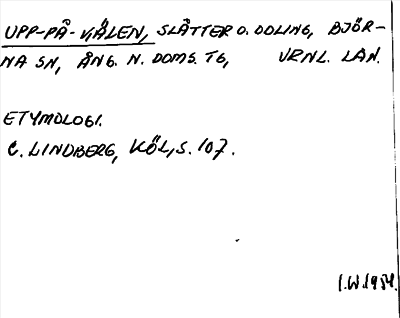 UPP-PÅ-KÄLEN, SLÅTTER O. ODLING, BJÖR-
NA SN, ÅNG. N. DOMS. TG, VRNL. LÄN.
ETYMOLOGI.
C. LINDBERG, KÖL, S. 107.
I.W. 1954.